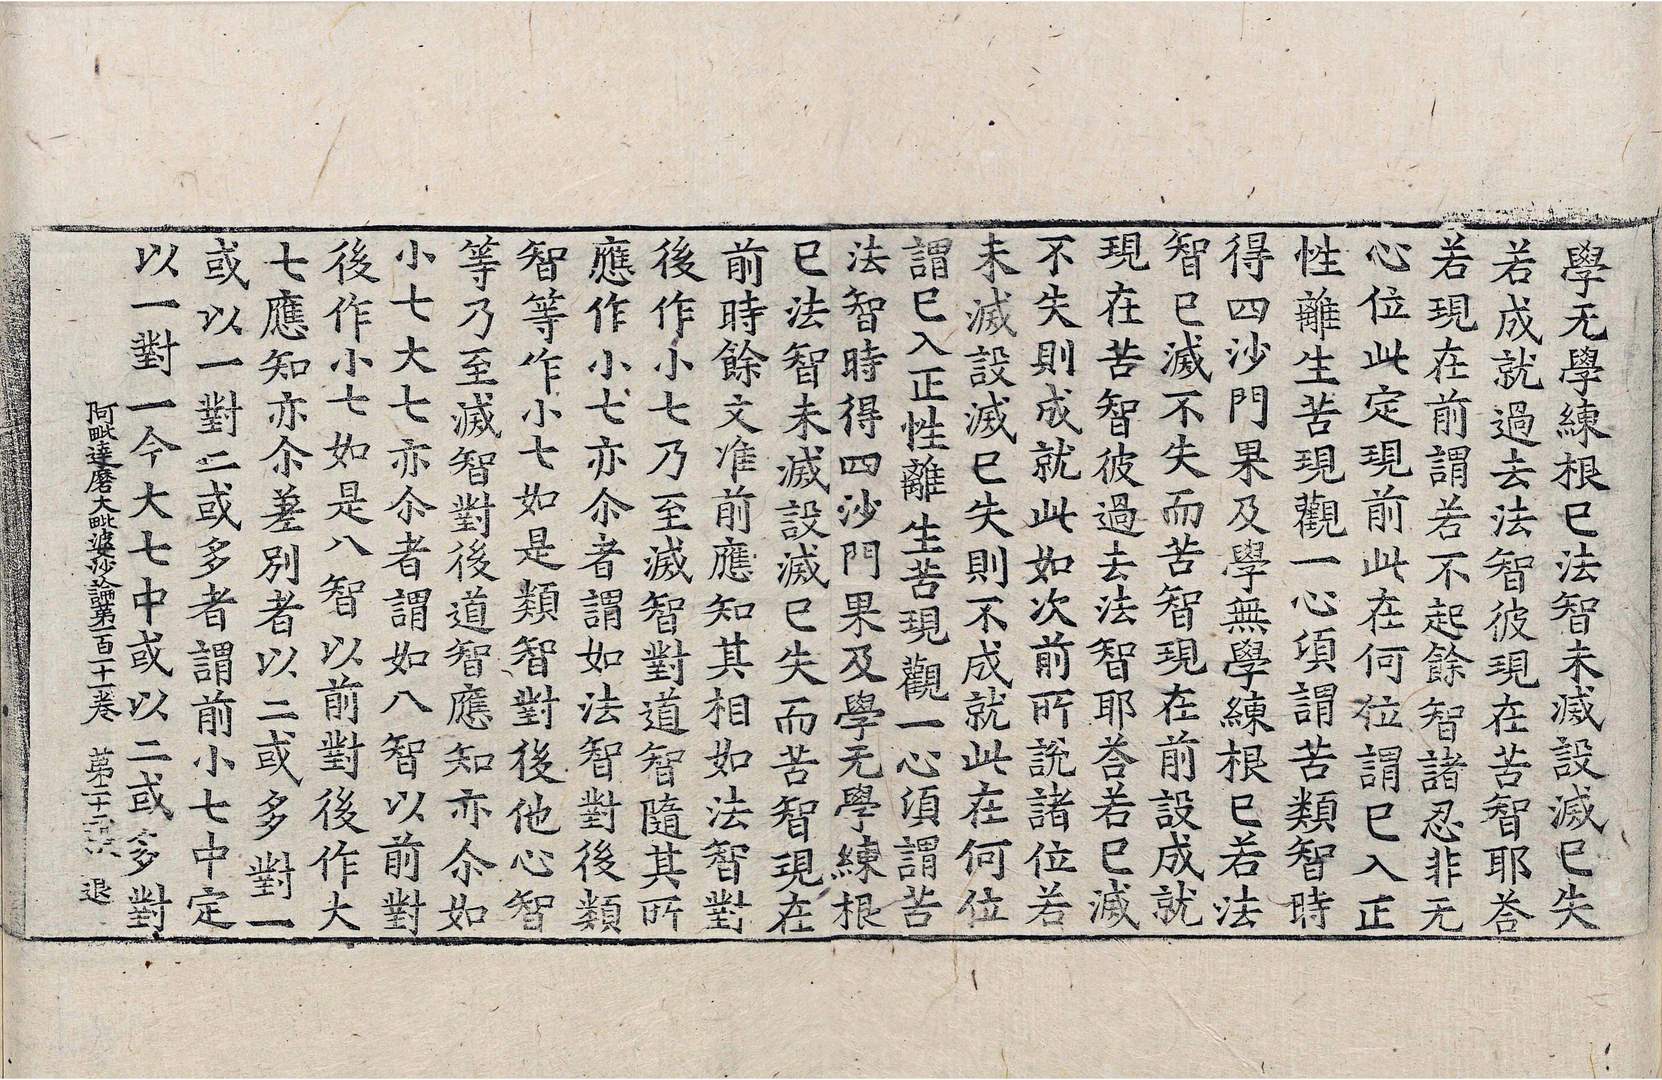 學无學練根已法智未滅設滅已失
若成就過去法智彼現在苦智耶荅
若現在前謂若不起餘智諸忍非无
心位此定現前此在何位謂已入正
性離生苦現觀一心須謂苦類智時
得四沙門果及學無學練根已若法
智已滅不失而苦智現在前設成就
現在苦智彼過去法智耶荅若已滅
不失則成就此如次前所說諸位若
未滅設滅已失則不成就此在何位
謂已入正性離生苦現觀一心須謂苦
法智時得四沙門果及學无學練根
已法智未滅設滅已失而苦智現在
前時餘文准前應知其相如法智對
後作小七乃至滅智對道智隨其所
應作小七亦尒者謂如法智對後類
智等作小七如是類智對後他心智
等乃至滅智對後道智應知亦尒如
小七大七亦尒者謂如八智以前對
後作小七如是八智以前對後作大
七應知亦尒差別者以二或多對一
或以一對二或多者謂前小七中定
以一對一今大七中或以二或多對
阿毗達磨大毗婆沙論第一百一十一卷 第二十二 退